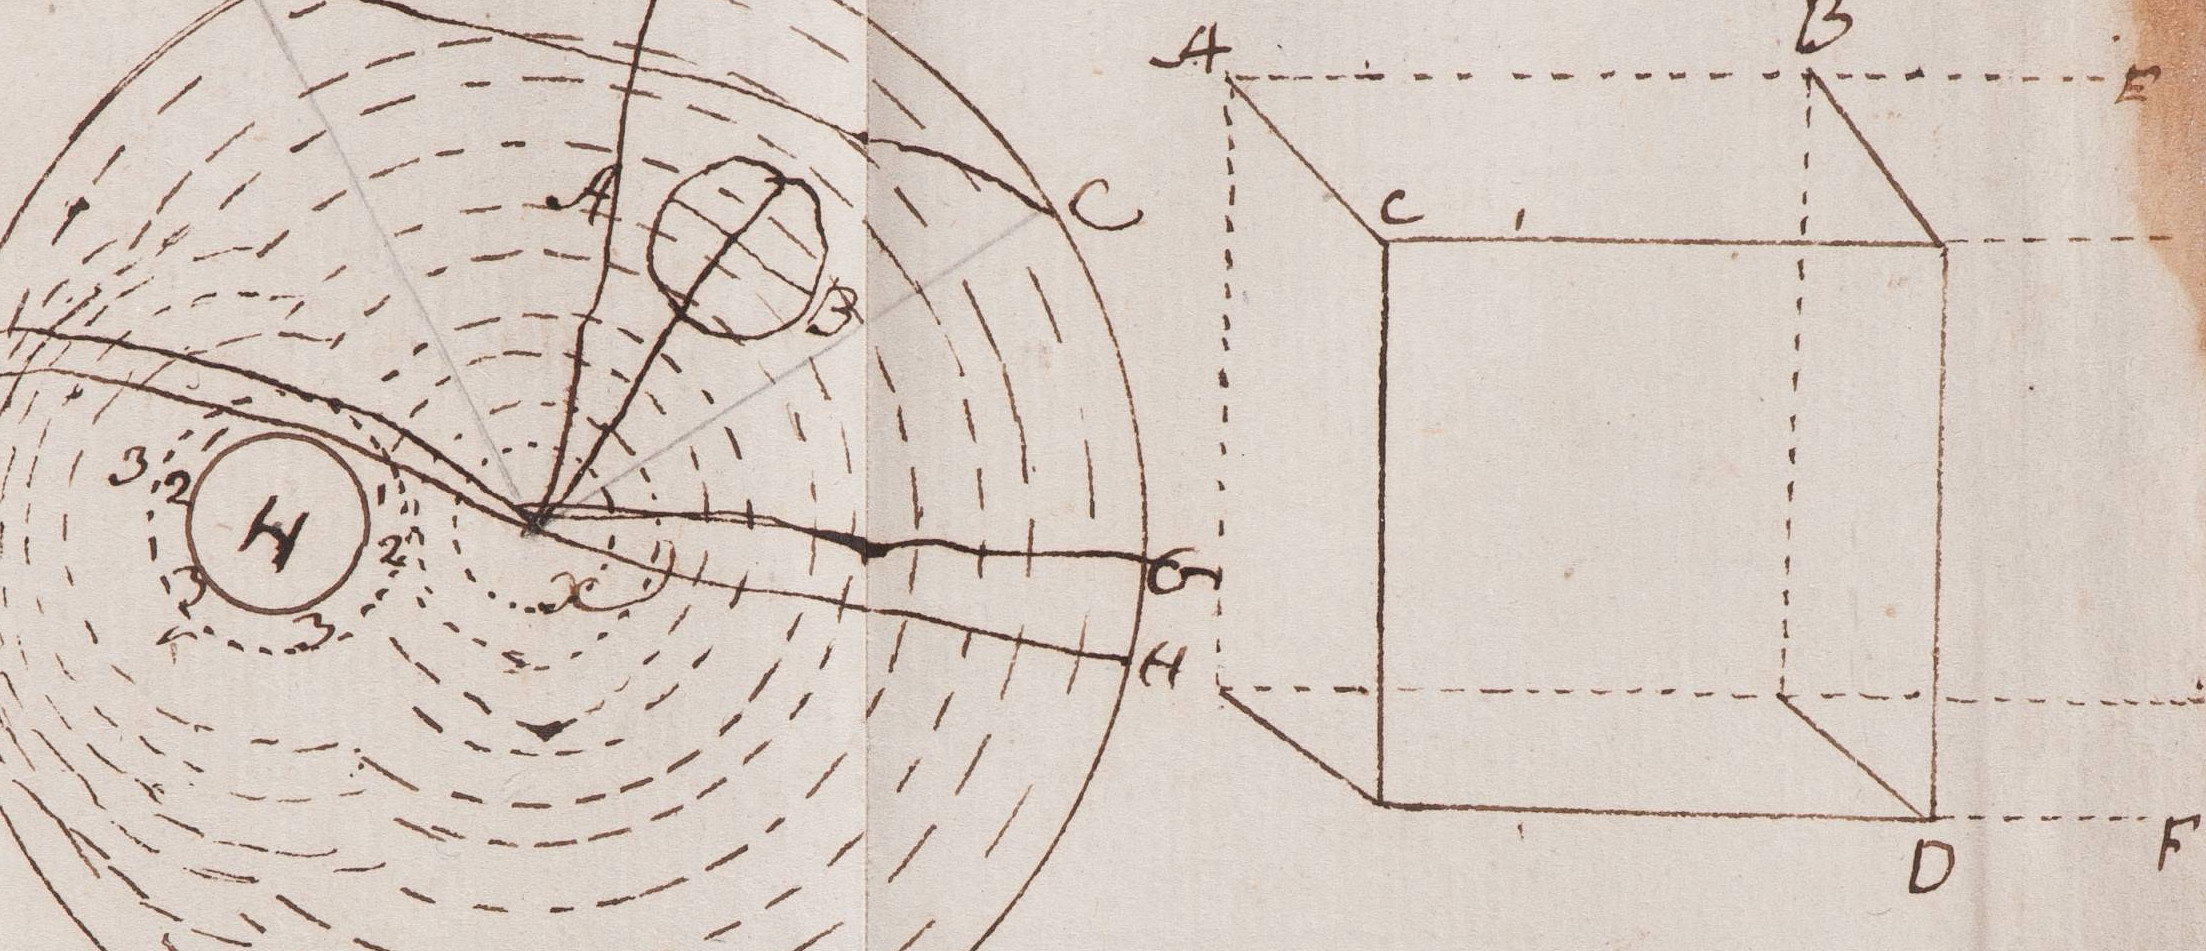 A
B
C
3
2
H
2
3
3
x
G
H
A
B
E
C
D
F